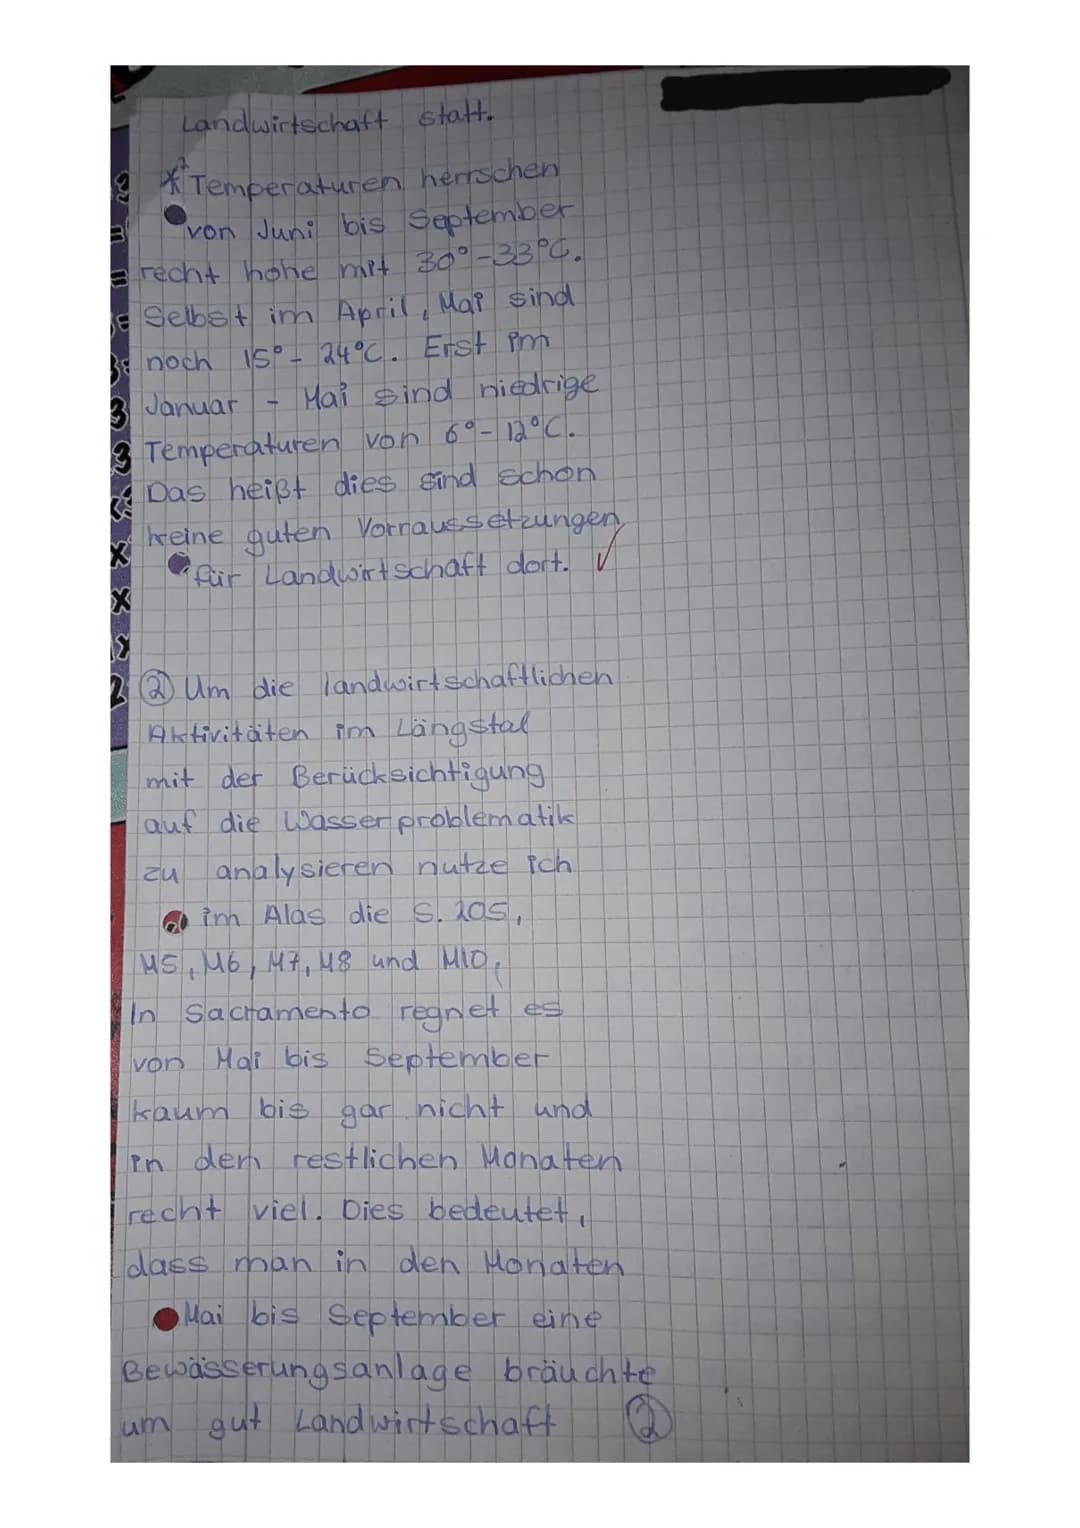 Landwirtschaft statt.
*² Temperaturen herrschen
von Juni bis September
recht hohe mit 30°-33°C.
Selbst im April, Mai sind
noch 15° - 24°C. Erst im
Januar - Mai sind niedrige
Temperaturen von 6°-12°C.
Das heißt dies sind schon
keine guten Vorraussetzungen
für Landwirtschaft dort. ✓
② Um die landwirtschaftlichen
Aktivitäten im Längstal
mit der Berücksichtigung
auf die Wasserproblematik
zu analysieren nutze ich
im Alas die S. 205,
M5, M6, M7, M8 und M10,
In Sacramento regnet es
von Mai bis September
kaum bis gar nicht und
in den restlichen Monaten
recht viel. Dies bedeutet,
dass man in den Monaten
Mai bis September eine
Bewässerungsanlage bräuchte
um gut Landwirtschaft ②